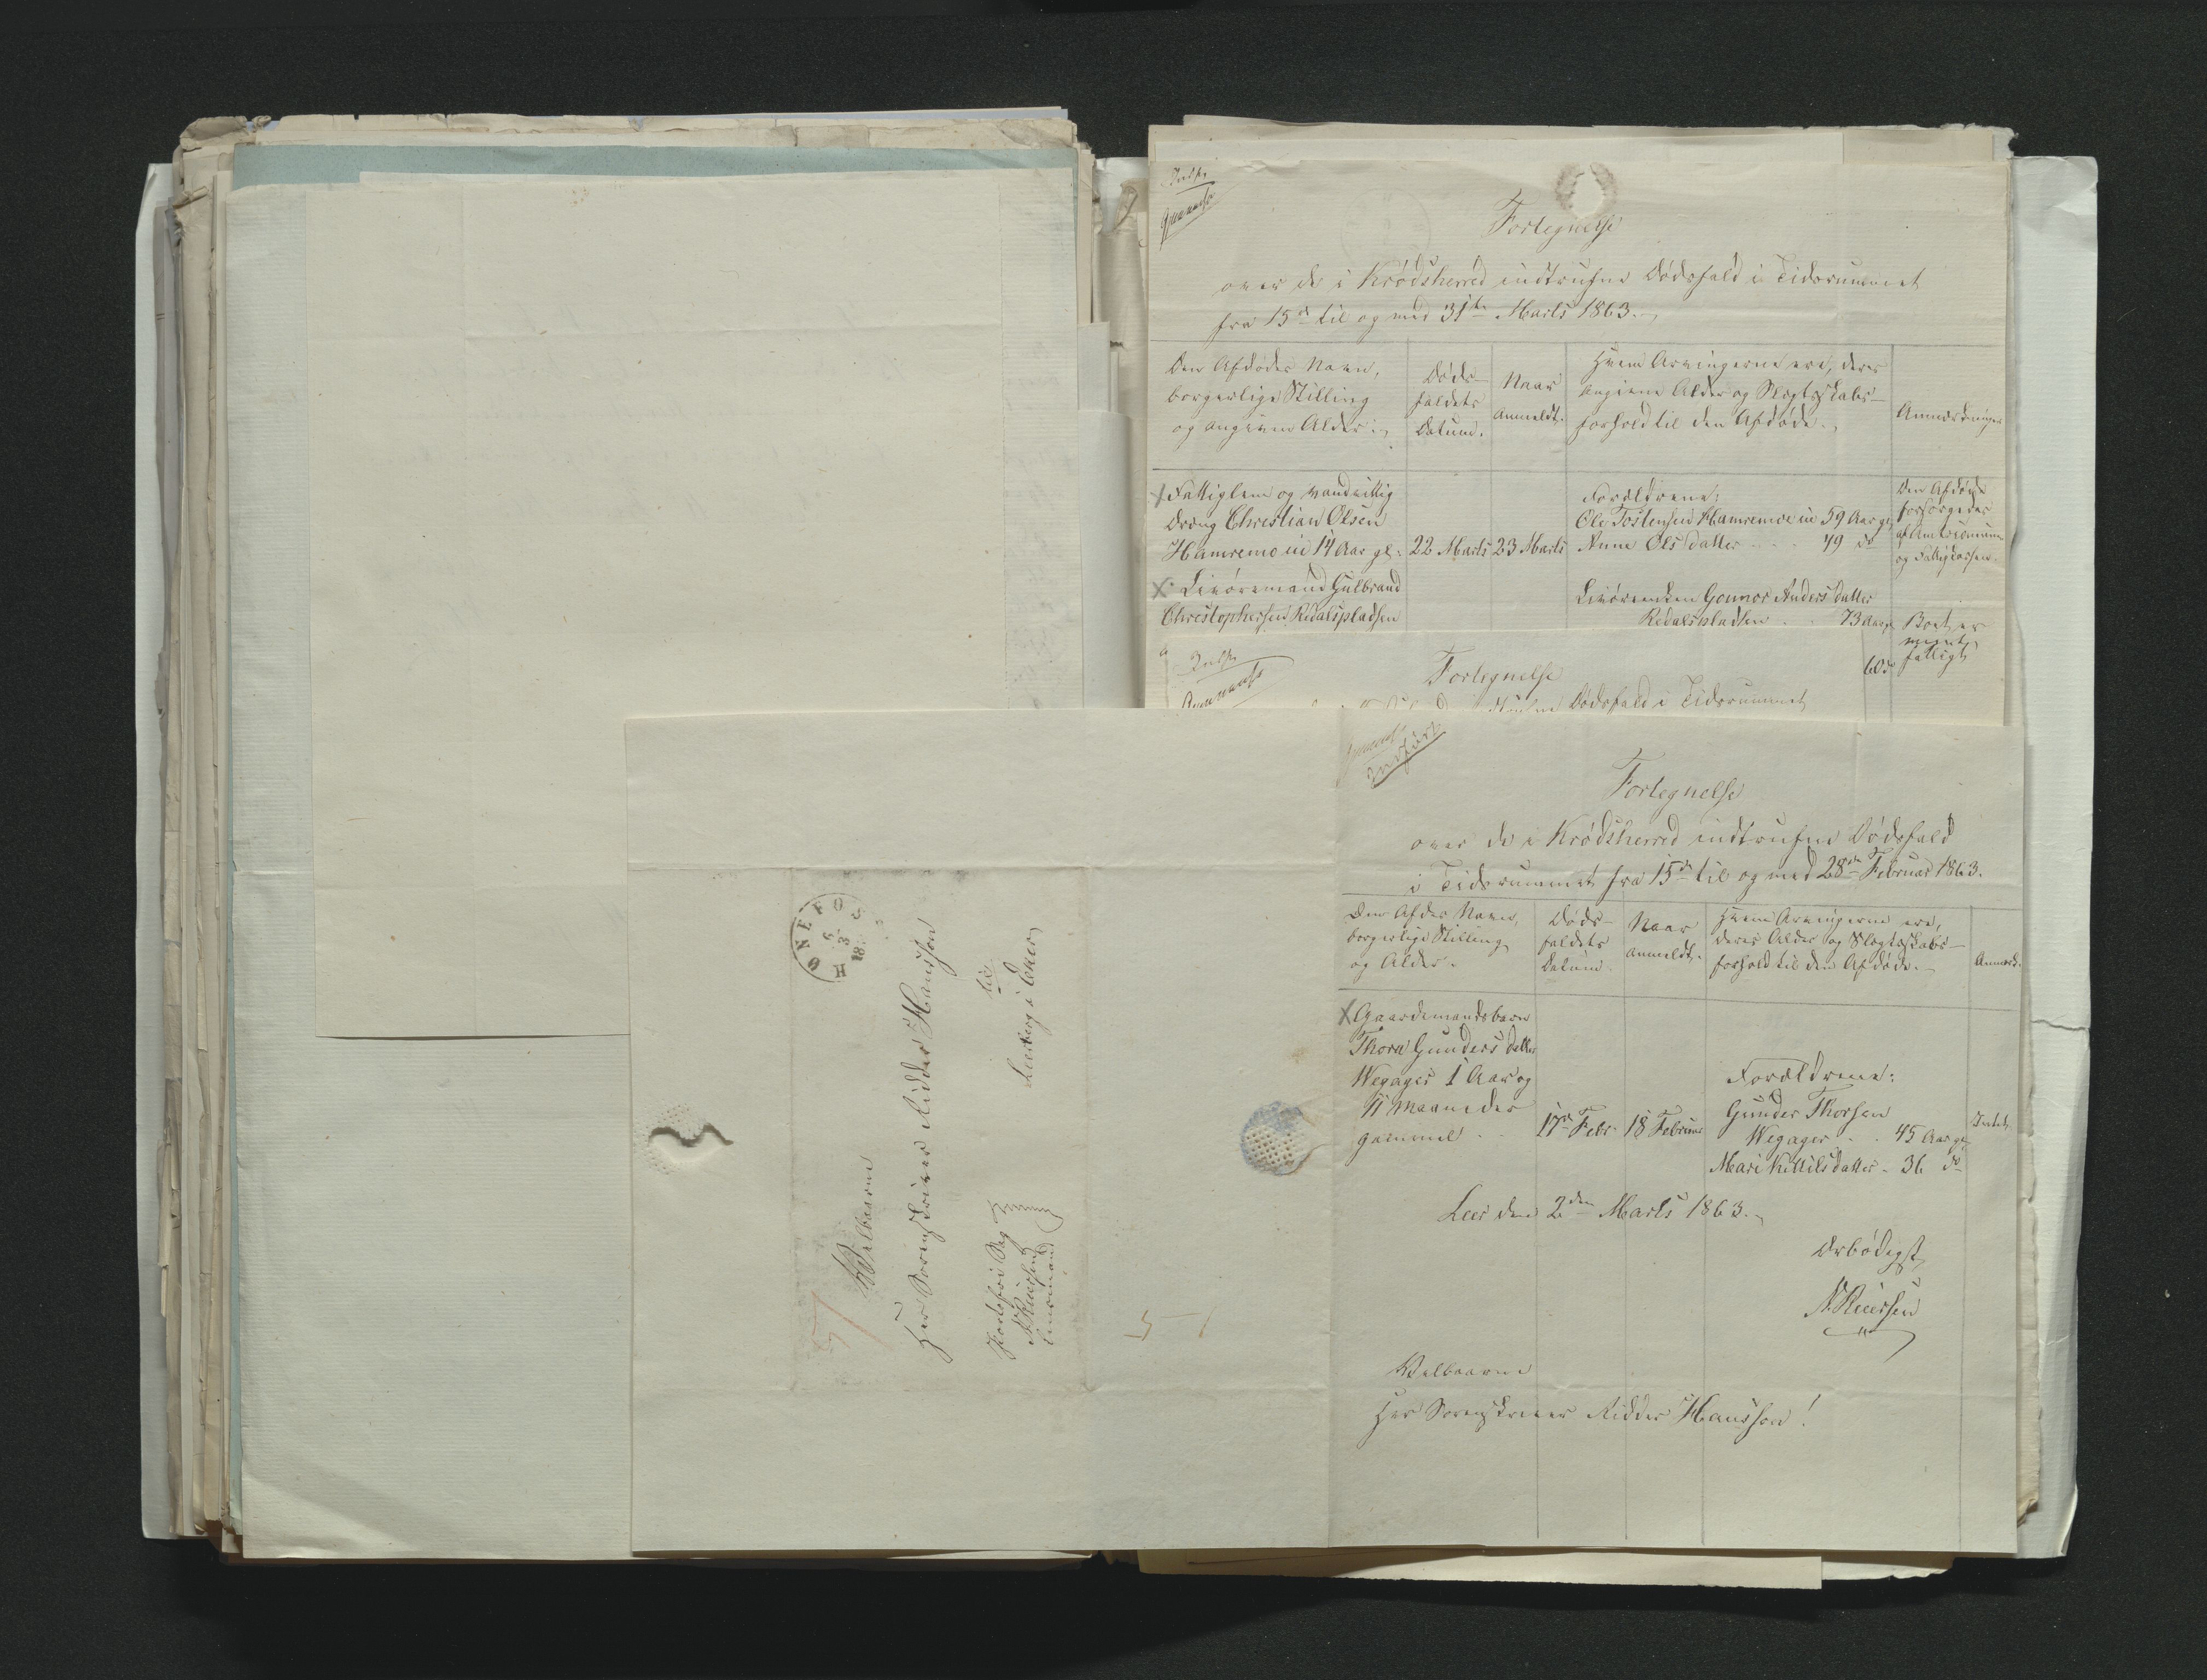 Indf.
Fortegnelse
over de i Krødsherred indtrufne Dødsfald i Tidsrummet
fra 15de til og med 31te Marts 1863.
Den Afdødes Navn,
borgerlige Stilling
og angivne Alder.
Døds-
faldets
Datum.
Naar
anmeldt.
Hvem Arvingerne ere, deres
angivne Alder og Slægtskabs-
forhold til den Afdøde.
Anmærkninger
Fattiglem og vandvittig
Dreng Christian Olsen
Hamremoen 14 Aar gl.
22 Marts
23 Marts
Forældrene:
Ole Tostensen Hamremoen 59 Aar gl.
Anne Olsdatter . . . 49 do
Den Afdøde
forsørgedes
af Amtscommunen
og Fattigkassen.
Livøremand Gulbrand
Christophersen Redalspladsen
Livørenken Gonnor Andersdatter
Redalspladsen . . 73 Aar gl.
60 do
Boet er
meget
fattigt
Indf.
Fortegnelse
Dødsfald i Tidsrummet
Indført
Fortegnelse
over de i Krødsherred indtrufne Dødsfald
i Tidsrummet fra 15de til og med 28de Februar 1863.
Den Afdødes Navn,
borgerlige Stilling
og Alder.
Døds-
faldets
Datum.
Naar
anmeldt.
Hvem Arvingerne ere,
deres Alder og Slægtskabs-
forhold til den Afdøde.
Anmærk.
Gaardemandsbarn
Thora Gundersdatter
Wegager 1 Aar og
11 Maaneder
gammel . .
17de Febr.
18 Februar
Forældrene:
Gunder Thorsen
Wegager . . 45 Aar gl.
Mari Kittilsdatter . 36 do
Intet
Leer den 2den Marts 1863.
Ærbødigst
N. Kuersen
Velbaarne
Herr Sorenskriver Ridder Hansson!
HØNEFOS
6
3
18
Velbaarne
Herr Sorenskriver Ridder Hansson
til
i Eker
Portofri Sag
N. Kuersen
Lensmand